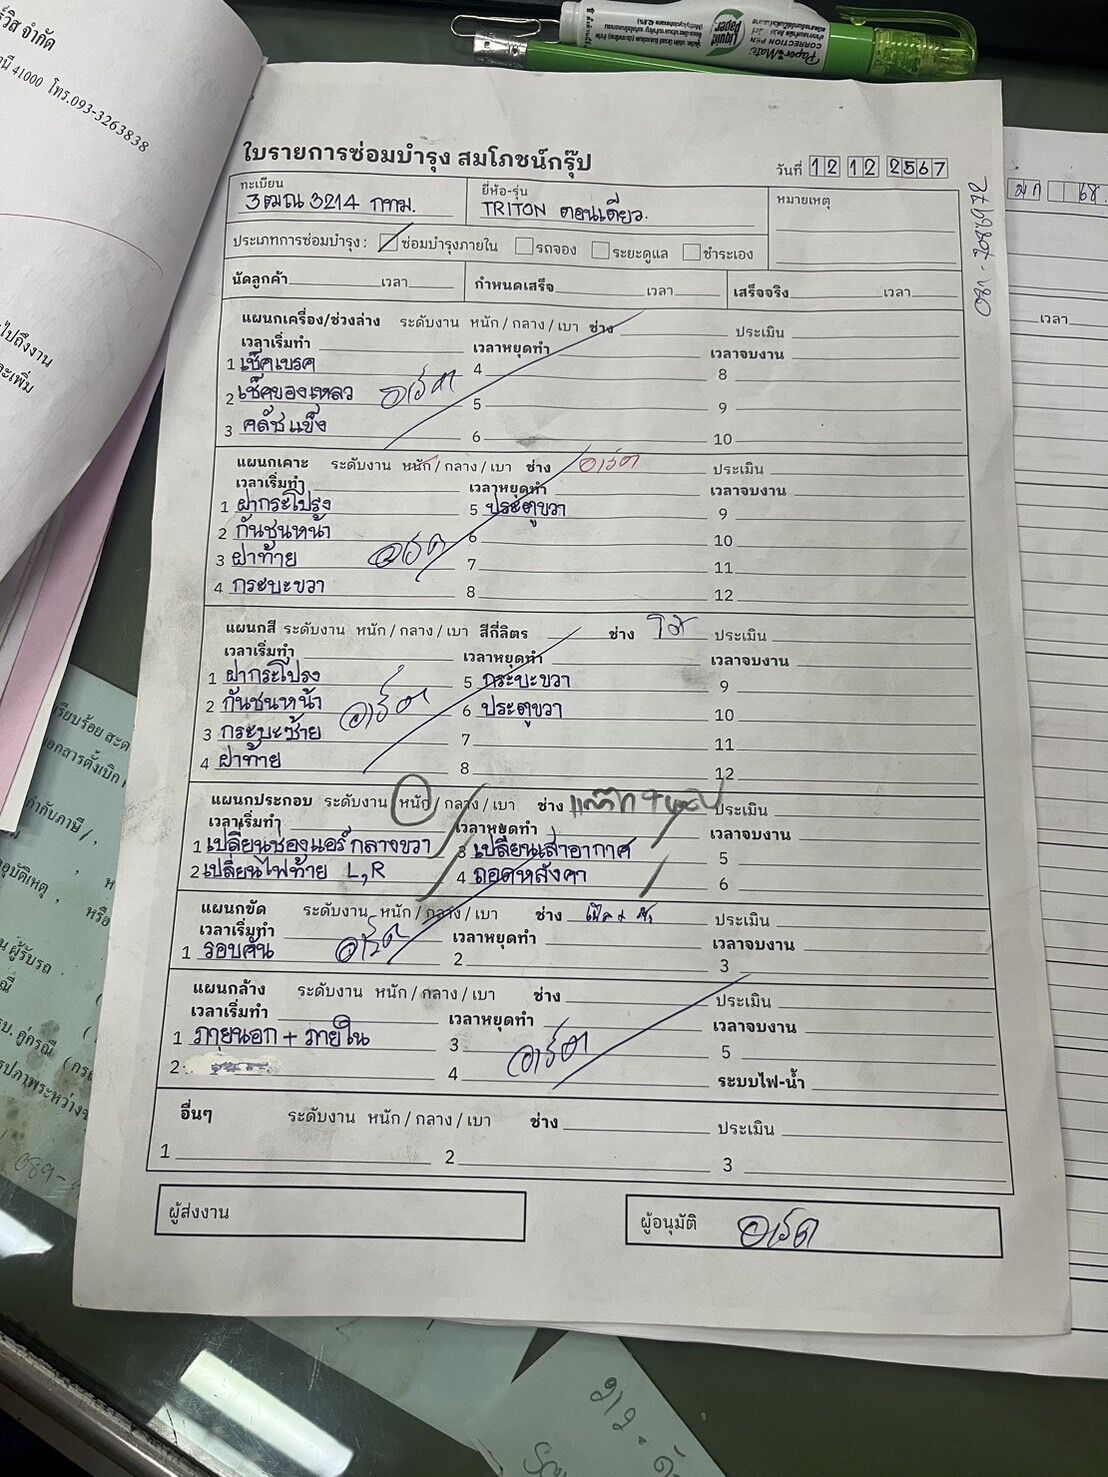 ร์วิส จำกัด
นี 41000 โทร.093-3263838
ไปถึงงาน
ละเพิ่ม
Liquid Paper
Paper Mate
CORRECTION PEN
ใบรายการซ่อมบำรุง สมโภชน์กรุ๊ป
วันที่ 12 12 2567
ทะเบียน 3ฒณ 3214 กทม.
ยี่ห้อ-รุ่น TRITON ตอนเดียว.
หมายเหตุ
ประเภทการซ่อมบำรุง : ซ่อมบำรุงภายใน รถจอง ระยะดูแล ชำระเอง
นัดลูกค้า เวลา กำหนดเสร็จ เวลา เสร็จจริง เวลา
แผนกเครื่อง/ช่วงล่าง ระดับงาน หนัก / กลาง / เบา ช่าง ประเมิน
เวลาเริ่มทำ เวลาหยุดทำ เวลาจบงาน
1 เช็คเบรค 4 8
2 เช็คของเหลว 5 9
3 คลัชแข็ง 6 10
แผนกเคาะ ระดับงาน หนัก / กลาง / เบา ช่าง ประเมิน
เวลาเริ่มทำ เวลาหยุดทำ เวลาจบงาน
1 ฝากระโปรง 5 ประตูขวา 9
2 กันชนหน้า 6 10
3 ฝาท้าย 7 11
4 กระบะขวา 8 12
แผนกสี ระดับงาน หนัก / กลาง / เบา สีกี่ลิตร ช่าง ประเมิน
เวลาเริ่มทำ เวลาหยุดทำ เวลาจบงาน
1 ฝากระโปรง 5 กระบะขวา 9
2 กันชนหน้า 6 ประตูขวา 10
3 กระบะซ้าย 7 11
4 ฝาท้าย 8 12
แผนกประกอบ ระดับงาน หนัก / กลาง / เบา ช่าง ประเมิน
เวลาเริ่มทำ เวลาหยุดทำ เวลาจบงาน
1 เปลี่ยนช่องแอร์กลางขวา 3 เปลี่ยนเสาอากาศ 5
2 เปลี่ยนไฟท้าย L,R 4 ถอดหลังคา 6
แผนกขัด ระดับงาน หนัก / กลาง / เบา ช่าง ประเมิน
เวลาเริ่มทำ เวลาหยุดทำ เวลาจบงาน
1 รอบคัน 2 3
แผนกล้าง ระดับงาน หนัก / กลาง / เบา ช่าง ประเมิน
เวลาเริ่มทำ เวลาหยุดทำ เวลาจบงาน
1 ภายนอก + ภายใน 3 5
2 4 ระบบไฟ-น้ำ
อื่นๆ ระดับงาน หนัก / กลาง / เบา ช่าง ประเมิน
1 2 3
ผู้ส่งงาน
ผู้อนุมัติ
เวลา